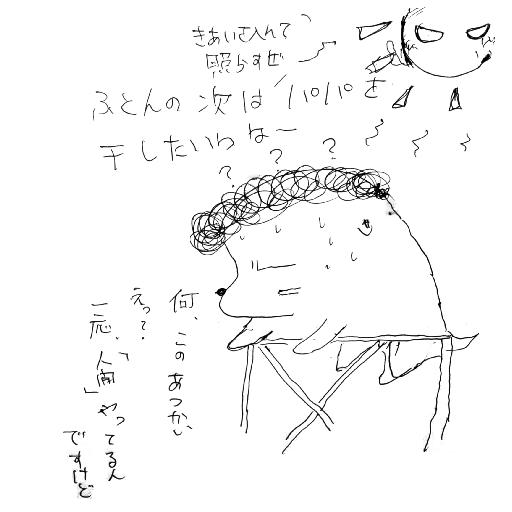 きあい入れて
照らすぜ
ふとんの次はパパを
干したいわねー
? ? ?
何、このあつかい
えっ?
一応、「人間」やってるん
ですけど